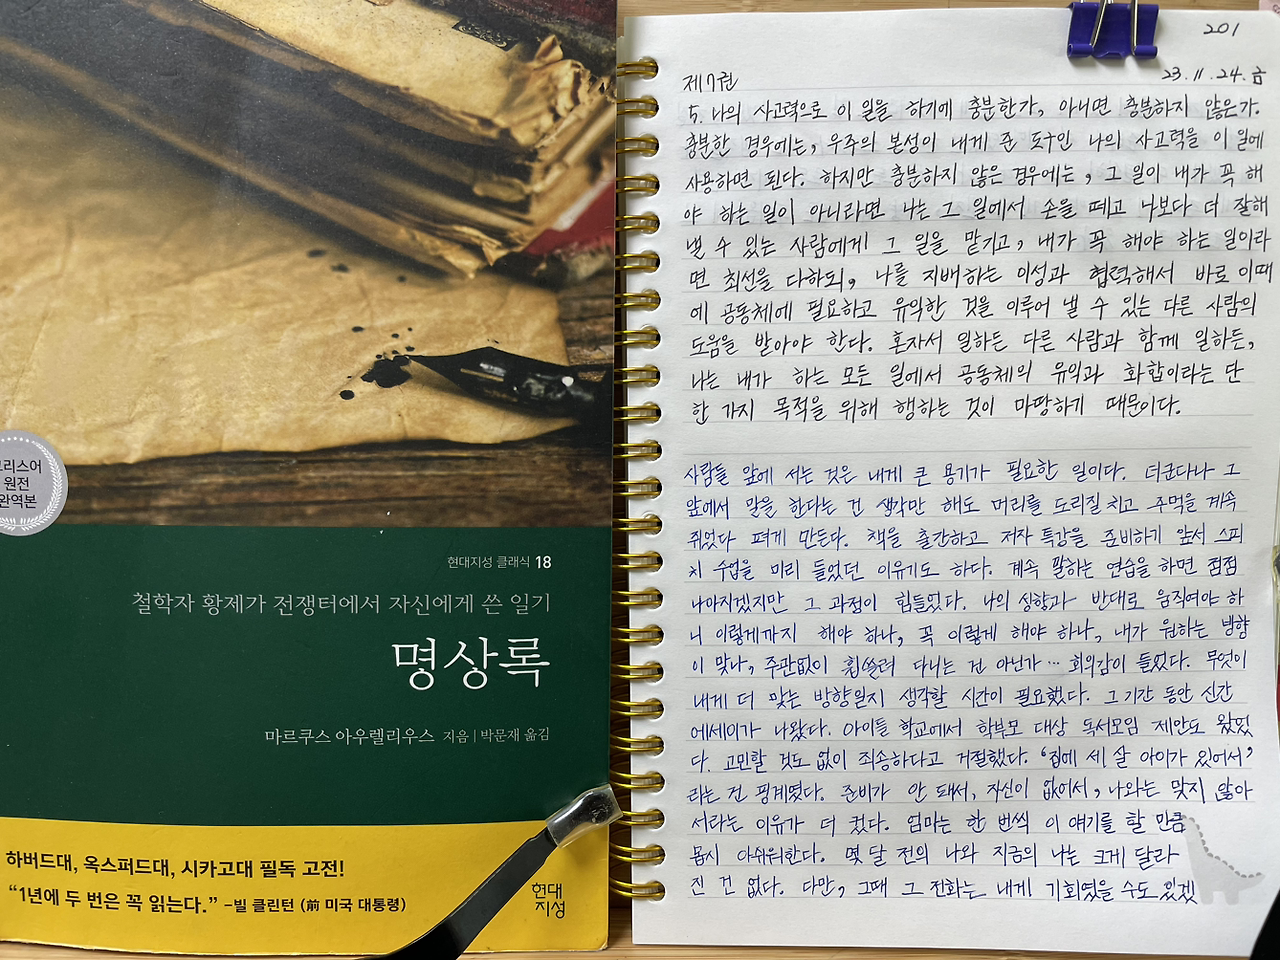 그리스어
원전
완역본
현대지성 클래식 18
철학자 황제가 전쟁터에서 자신에게 쓴 일기
명상록
마르쿠스 아우렐리우스 지음 | 박문재 옮김
하버드대, 옥스퍼드대, 시카고대 필독 고전!
“1년에 두 번은 꼭 읽는다.” -빌 클린턴 (前 미국 대통령)
현대
지성
201
제7권
23.11.24.금
5. 나의 사고력으로 이 일을 하기에 충분한가, 아니면 충분하지 않은가.
충분한 경우에는, 우주의 본성이 내게 준 도구인 나의 사고력을 이 일에
사용하면 된다. 하지만 충분하지 않은 경우에는, 그 일이 내가 꼭 해
야 하는 일이 아니라면 나는 그 일에서 손을 떼고 나보다 더 잘해
낼 수 있는 사람에게 그 일을 맡기고, 내가 꼭 해야 하는 일이라
면 최선을 다하되, 나를 지배하는 이성과 협력해서 바로 이때
에 공동체에 필요하고 유익한 것을 이루어 낼 수 있는 다른 사람의
도움을 받아야 한다. 혼자서 일하든 다른 사람과 함께 일하든,
나는 내가 하는 모든 일에서 공동체의 유익과 화합이라는 단
한 가지 목적을 위해 행하는 것이 마땅하기 때문이다.
사람들 앞에 서는 것은 내게 큰 용기가 필요한 일이다. 더군다나 그
앞에서 말을 한다는 건 생각만 해도 머리를 도리질 치고 주먹을 계속
쥐었다 펴게 만든다. 책을 출간하고 저자 특강을 준비하기 앞서 스피
치 수업을 미리 들었던 이유기도 하다. 계속 말하는 연습을 하면 점점
나아지겠지만 그 과정이 힘들었다. 나의 성향과 반대로 움직여야 하
니 이렇게까지 해야 하나, 꼭 이렇게 해야 하나, 내가 원하는 방향
이 맞나, 주관없이 휩쓸려 다니는 건 아닌가… 회의감이 들었다. 무엇이
내게 더 맞는 방향일지 생각할 시간이 필요했다. 그 기간 동안 신간
에세이가 나왔다. 아이들 학교에서 학부모 대상 독서모임 제안도 왔었
다. 고민할 것도 없이 죄송하다고 거절했다. ‘집에 세 살 아이가 있어서’
라는 건 핑계였다. 준비가 안 돼서, 자신이 없어서, 나와는 맞지 않아
서라는 이유가 더 컸다. 엄마는 한 번씩 이 얘기를 할 만큼
몹시 아쉬워한다. 몇 달 전의 나와 지금의 나는 크게 달라
진 건 없다. 다만, 그때 그 전화는 내게 기회였을 수도 있겠